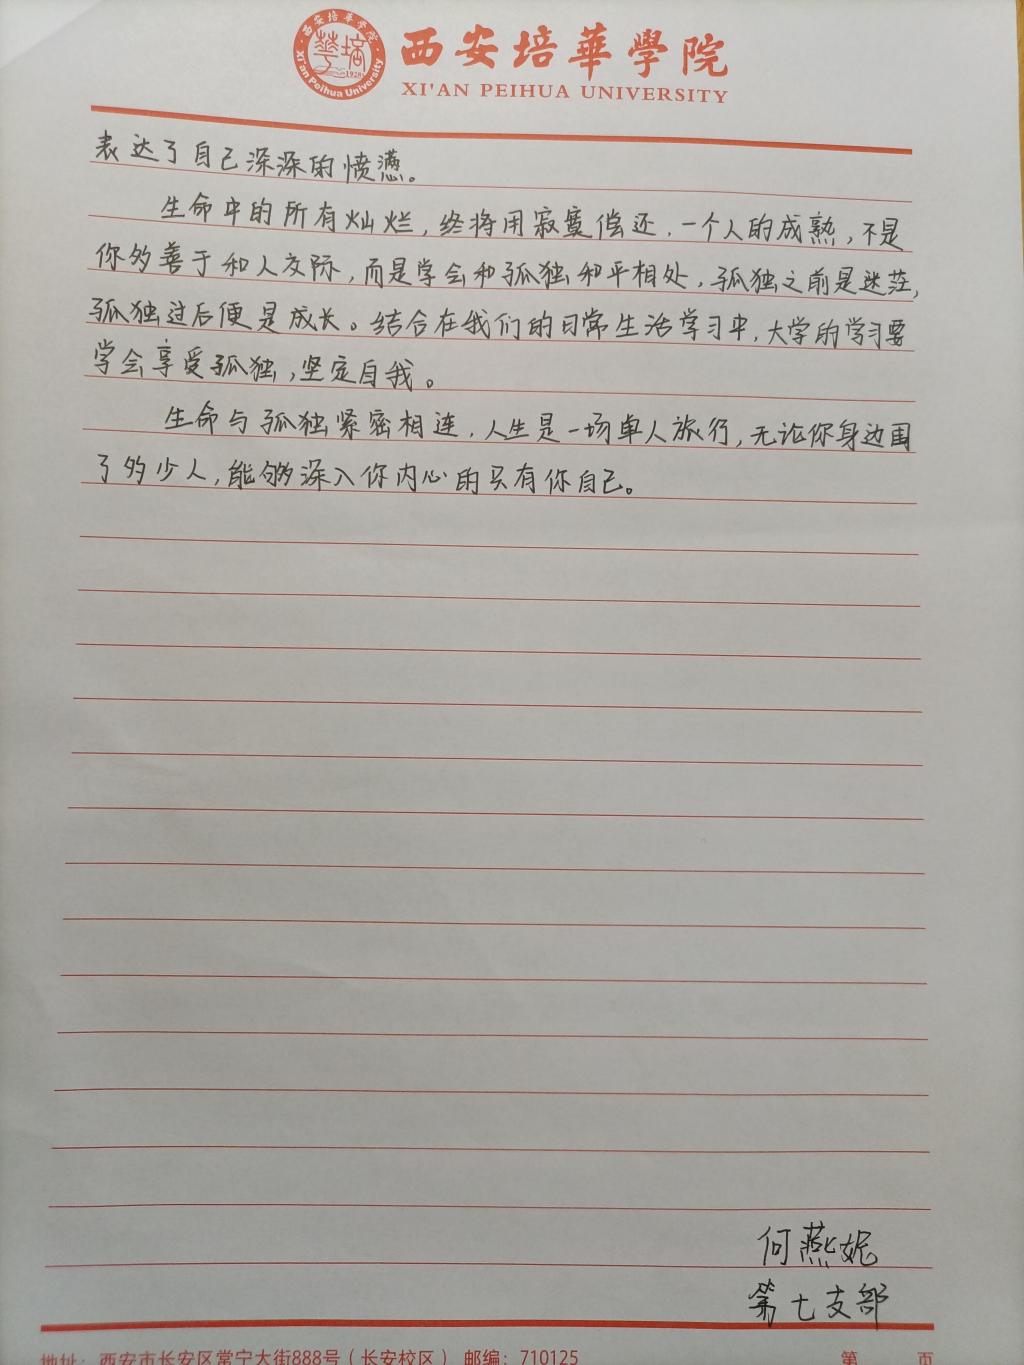 西安培華學院
西安培華學院
1928
Xi'an Peihua University
XI'AN PEIHUA UNIVERSITY
表达了自己深深的愤懑。
生命中的所有灿烂，终将用寂寞偿还，一个人的成熟，不是
你多善于和人交际，而是学会和孤独和平相处，孤独之前是迷茫，
孤独过后便是成长。结合在我们的日常生活学习中，大学的学习要
学会享受孤独，坚定自我。
生命与孤独紧密相连，人生是一场单人旅行，无论你身边围
了多少人，能够深入你内心的只有你自己。
何燕妮
第七支部
地址：西安市长安区常宁大街888号（长安校区） 邮编：710125 第 页